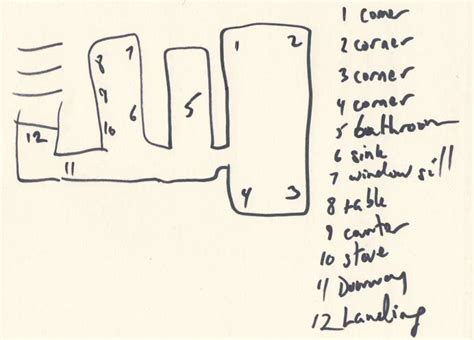 1
2
8
7
9
6
10
5
12
11
4
3
1 corner
2 corner
3 corner
4 corner
5 bathroom
6 sink
7 window sill
8 table
9 counter
10 stove
11 Doorway
12 Landing